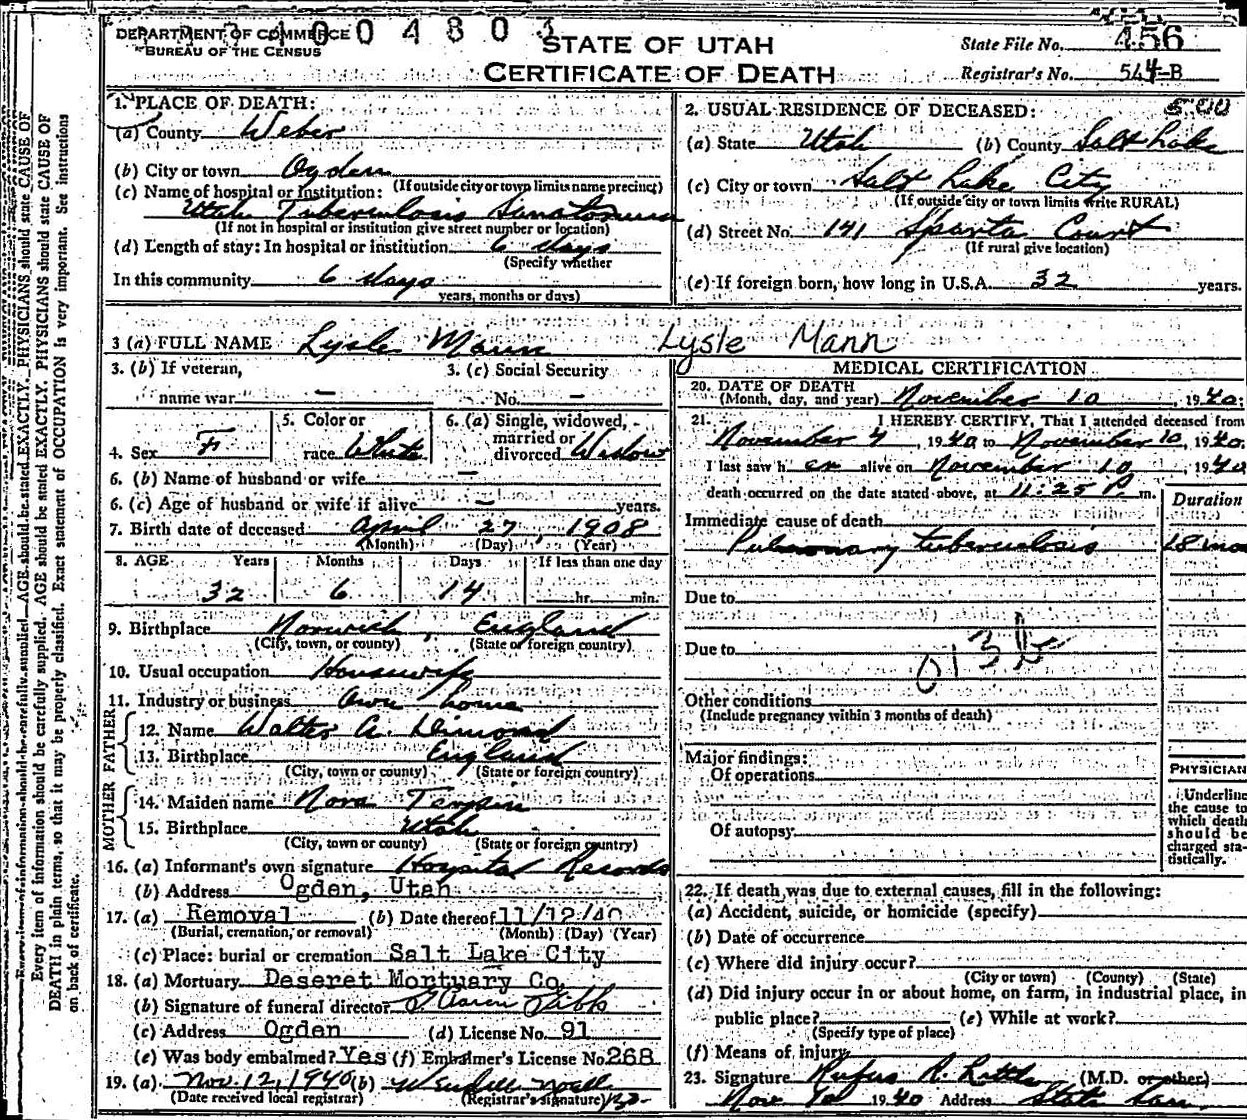 DEPARTMENT OF COMMERCE
BUREAU OF THE CENSUS
1004803
STATE OF UTAH
CERTIFICATE OF DEATH
State File No. 456
Registrar's No. 544-B
1. PLACE OF DEATH:
(a) County Weber
(b) City or town Ogden
(If outside city or town limits name precinct)
(c) Name of hospital or Institution:
Utah Tuberculosis Sanatorium
(If not in hospital or institution give street number or location)
(d) Length of stay: In hospital or institution 6 days
(Specify whether
In this community 6 days
years, months or days)
2. USUAL RESIDENCE OF DECEASED: 500
(a) State Utah (b) County Salt Lake
(c) City or town Salt Lake City
(If outside city or town limits write RURAL)
(d) Street No. 141 Sparta Court
(If rural give location)
(e) If foreign born, how long in U.S.A. 32 years.
3 (a) FULL NAME Lysle Mann Lysle Mann
3. (b) If veteran,
name war —
3. (c) Social Security
No. —
4. Sex F
5. Color or
race White
6. (a) Single, widowed,
married or
divorced Widow
6. (b) Name of husband or wife —
6. (c) Age of husband or wife if alive — years.
7. Birth date of deceased April 27, 1908
(Month) (Day) (Year)
8. AGE Years Months Days If less than one day
32 6 14 hr. min.
9. Birthplace Norwich, England
(City, town, or county) (State or foreign country)
10. Usual occupation Housewife
11. Industry or business Own home
FATHER
12. Name Walter A. Dimond
13. Birthplace England
(City, town or county) (State or foreign country)
MOTHER
14. Maiden name Nora
15. Birthplace Utah
(City, town or county) (State or foreign country)
16. (a) Informant's own signature Hospital Records
(b) Address Ogden, Utah
17. (a) Removal (b) Date thereof 11/12/40
(Burial, cremation, or removal) (Month) (Day) (Year)
(c) Place: burial or cremation Salt Lake City
18. (a) Mortuary Deseret Mortuary Co.
(b) Signature of funeral director
(c) Address Ogden (d) License No. 91
(e) Was body embalmed? Yes (f) Embalmer's License No. 268
19. (a) Nov. 12, 1940 (b) Wendell Noall
(Date received local registrar) (Registrar's signature)
MEDICAL CERTIFICATION
20. DATE OF DEATH
(Month, day, and year) November 10, 1940;
21. I HEREBY CERTIFY, That I attended deceased from
November 4, 1940 to November 10, 1940.
I last saw h er alive on November 10, 1940
death occurred on the date stated above, at 11:25 P. m.
Duration
Immediate cause of death
Pulmonary tuberculosis 18 mos
Due to
013b
Due to
Other conditions
(Include pregnancy within 3 months of death)
Major findings:
Of operations
Of autopsy
PHYSICIAN
Underline
the cause to
which death
should be
charged sta-
tistically.
22. If death was due to external causes, fill in the following:
(a) Accident, suicide, or homicide (specify)
(b) Date of occurrence
(c) Where did injury occur?
(City or town) (County) (State)
(d) Did injury occur in or about home, on farm, in industrial place, in
public place? (e) While at work?
(Specify type of place)
(f) Means of injury
23. Signature Rufus R. Little (M.D. or other)
Nov. 1940 Address State San.
Every item of information should be carefully supplied. AGE should be stated EXACTLY. PHYSICIANS should state CAUSE OF
DEATH in plain terms, so that it may be properly classified. Exact statement of OCCUPATION is very important. See instructions
on back of certificate.